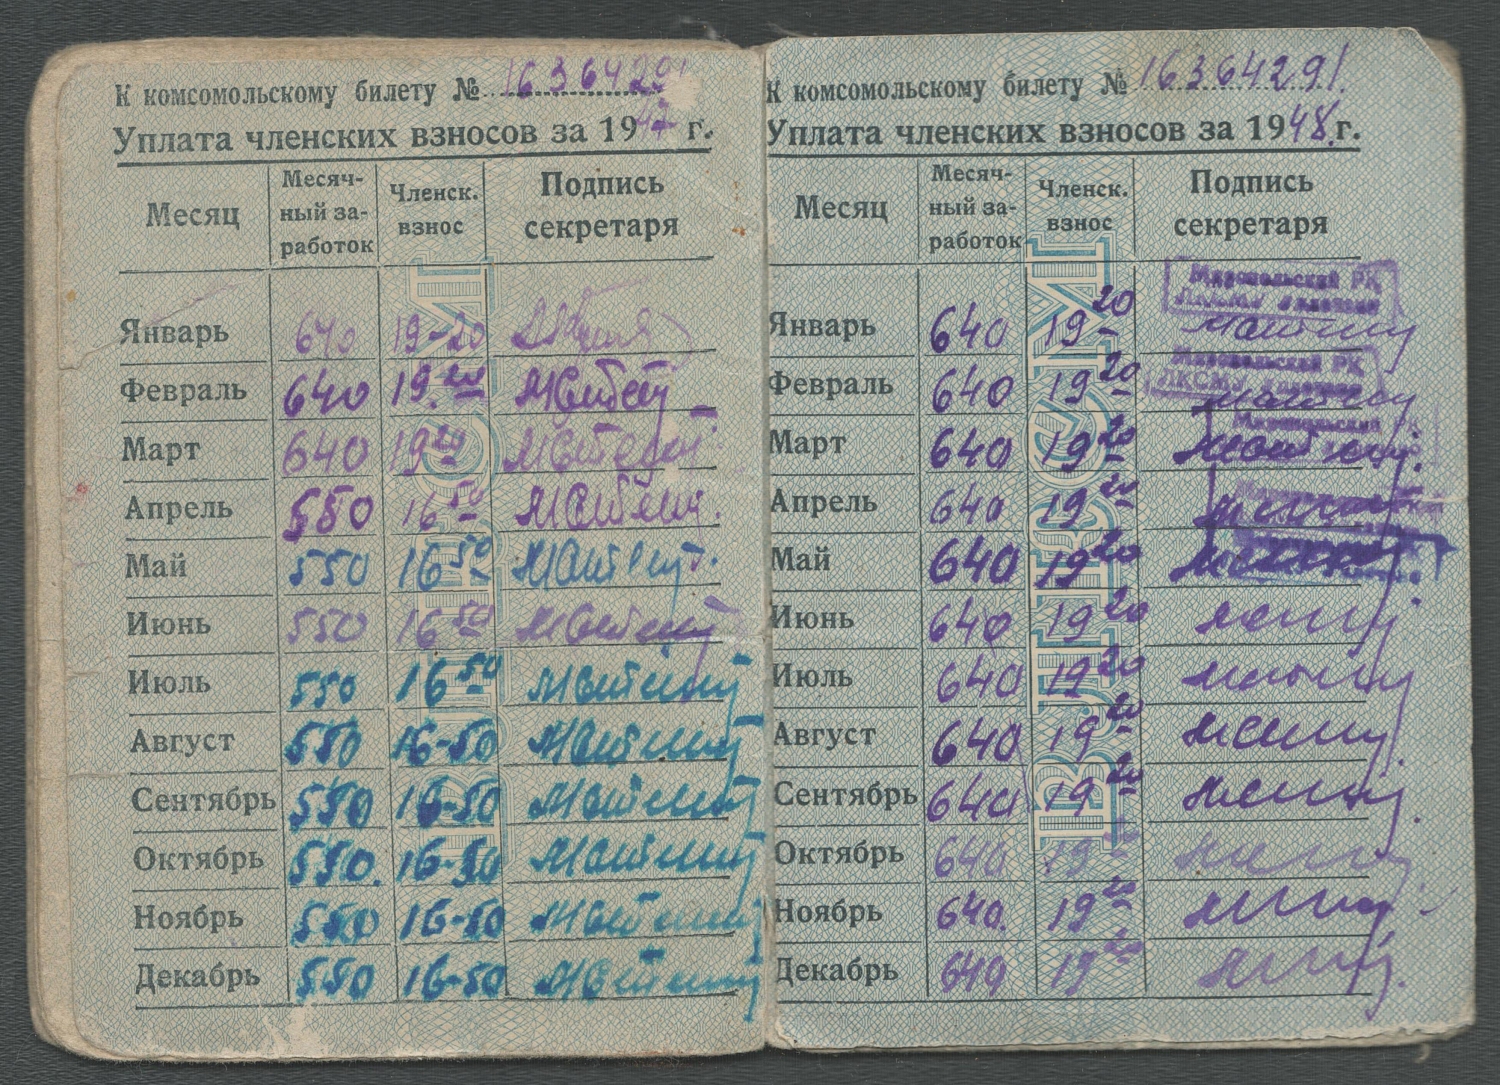 К комсомольскому билету № 16364291
Уплата членских взносов за 1947 г.
Месяц Месяч- ный за- работок Членск. взнос Подпись секретаря
Январь 640 19-20
Февраль 640 19.20
Март 640 19 20
Апрель 550 16 50
Май 550 16 50
Июнь 550 16 50
Июль 550 16 50
Август 550 16-50
Сентябрь 550 16-50
Октябрь 550. 16-50
Ноябрь 550 16-50
Декабрь 550 16-50
К комсомольскому билету № 16364291.
Уплата членских взносов за 1948 г.
Месяц Месяч- ный за- работок Членск. взнос Подпись секретаря
Миропольский РК
ЛКСМУ
Январь 640 19 20
Миропольский РК
ЛКСМУ
Февраль 640 19 20
Миропольский
Март 640 19 20
Апрель 640 19 20
Май 640 19 20
Июнь 640 19 20
Июль 640 19 20
Август 640 19 20
Сентябрь 640 19 20
Октябрь 640 19
Ноябрь 640. 19 20
Декабрь 640 19 20
ВЛКСМ
ВЛКСМ